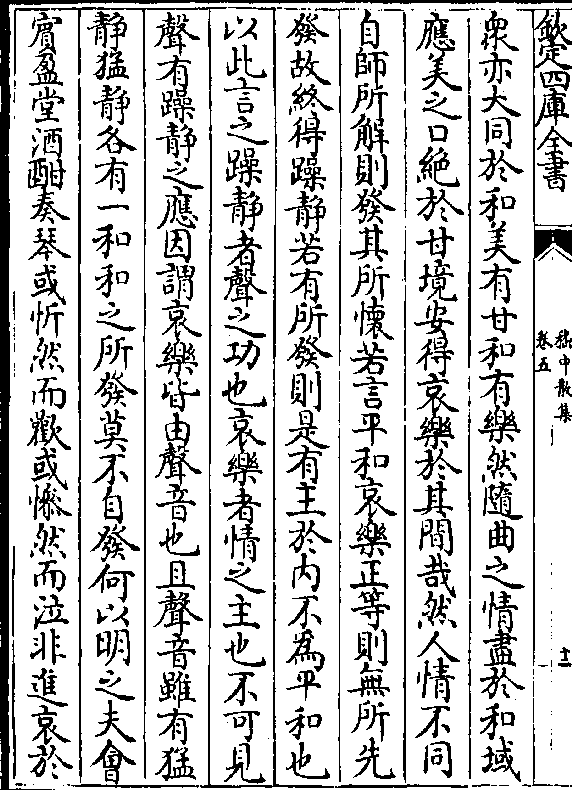 欽定四庫全書
嵇中散集
卷五
十一
衆亦大同於和美有甘和有樂然隨曲之情盡於和域
應美之口絶於甘境安得哀樂於其間哉然人情不同
自師所解則發其所懷若言平和哀樂正等則無所先
發故終得躁静若有所發則是有主於内不為平和也
以此言之躁静者聲之功也哀樂者情之主也不可見
聲有躁静之應因謂哀樂皆由聲音也且聲音雖有猛
静猛静各有一和和之所發莫不自發何以明之夫會
賔盈堂酒酣奏琴或忻然而歡或慘然而泣非進哀於